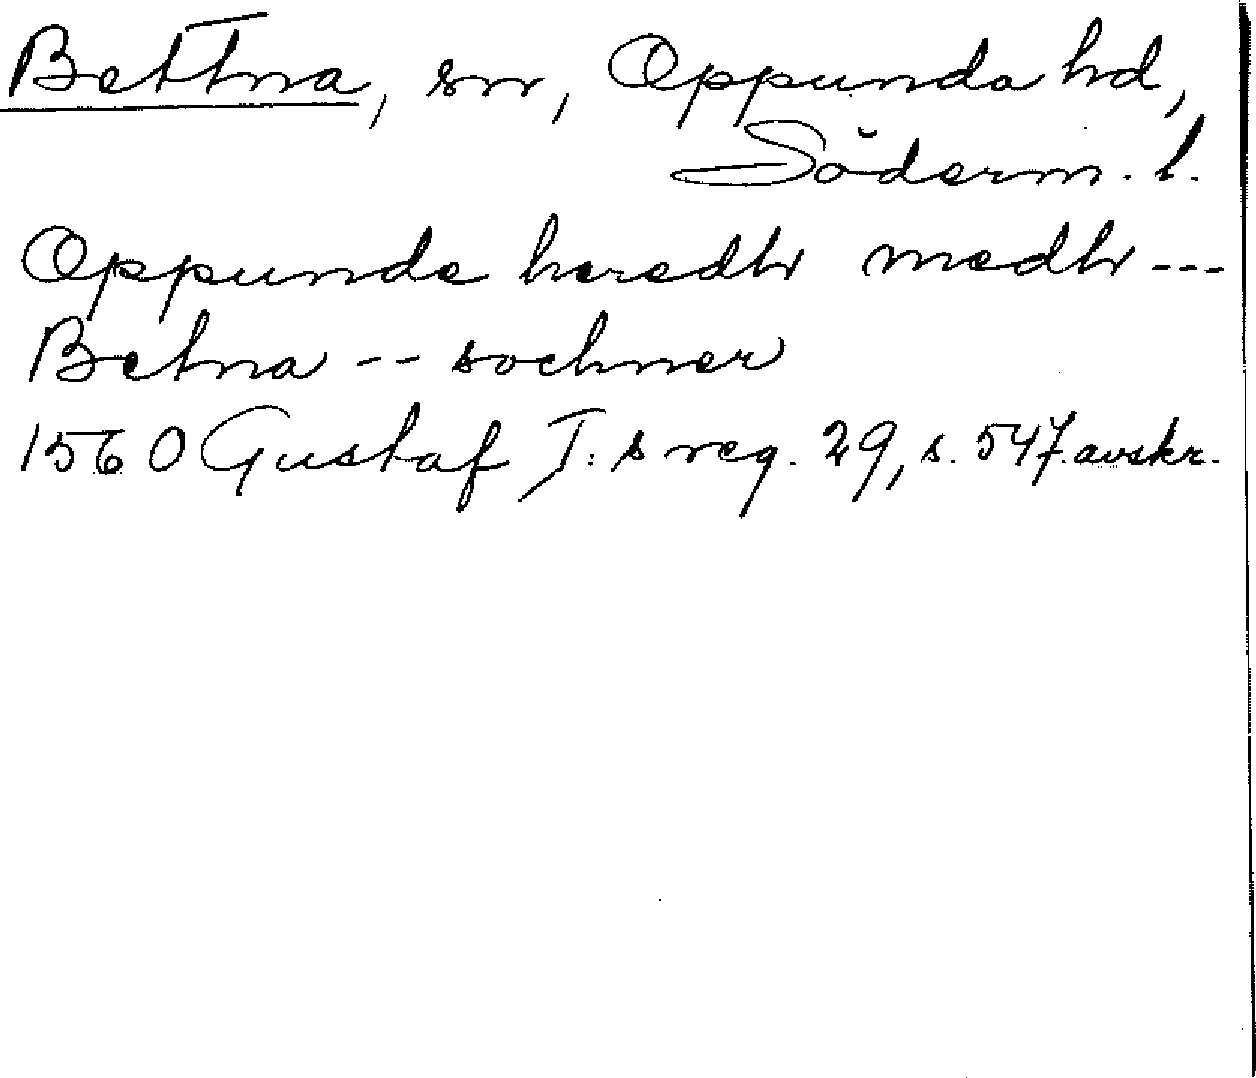 Bettna, sn, Oppunda hd,
Söderm. l.
Oppunde heredh medh ---
Betna -- sochner
1560 Gustaf I:s reg. 29, s. 547. avskr.